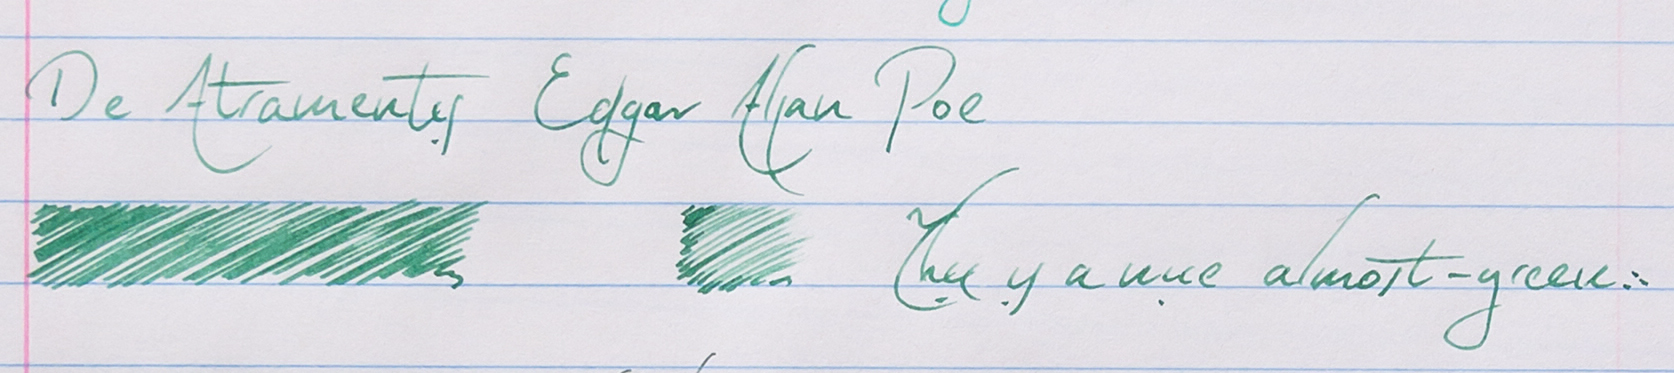 De Atramentis Edgar Allan Poe
This is a nice almost-green.